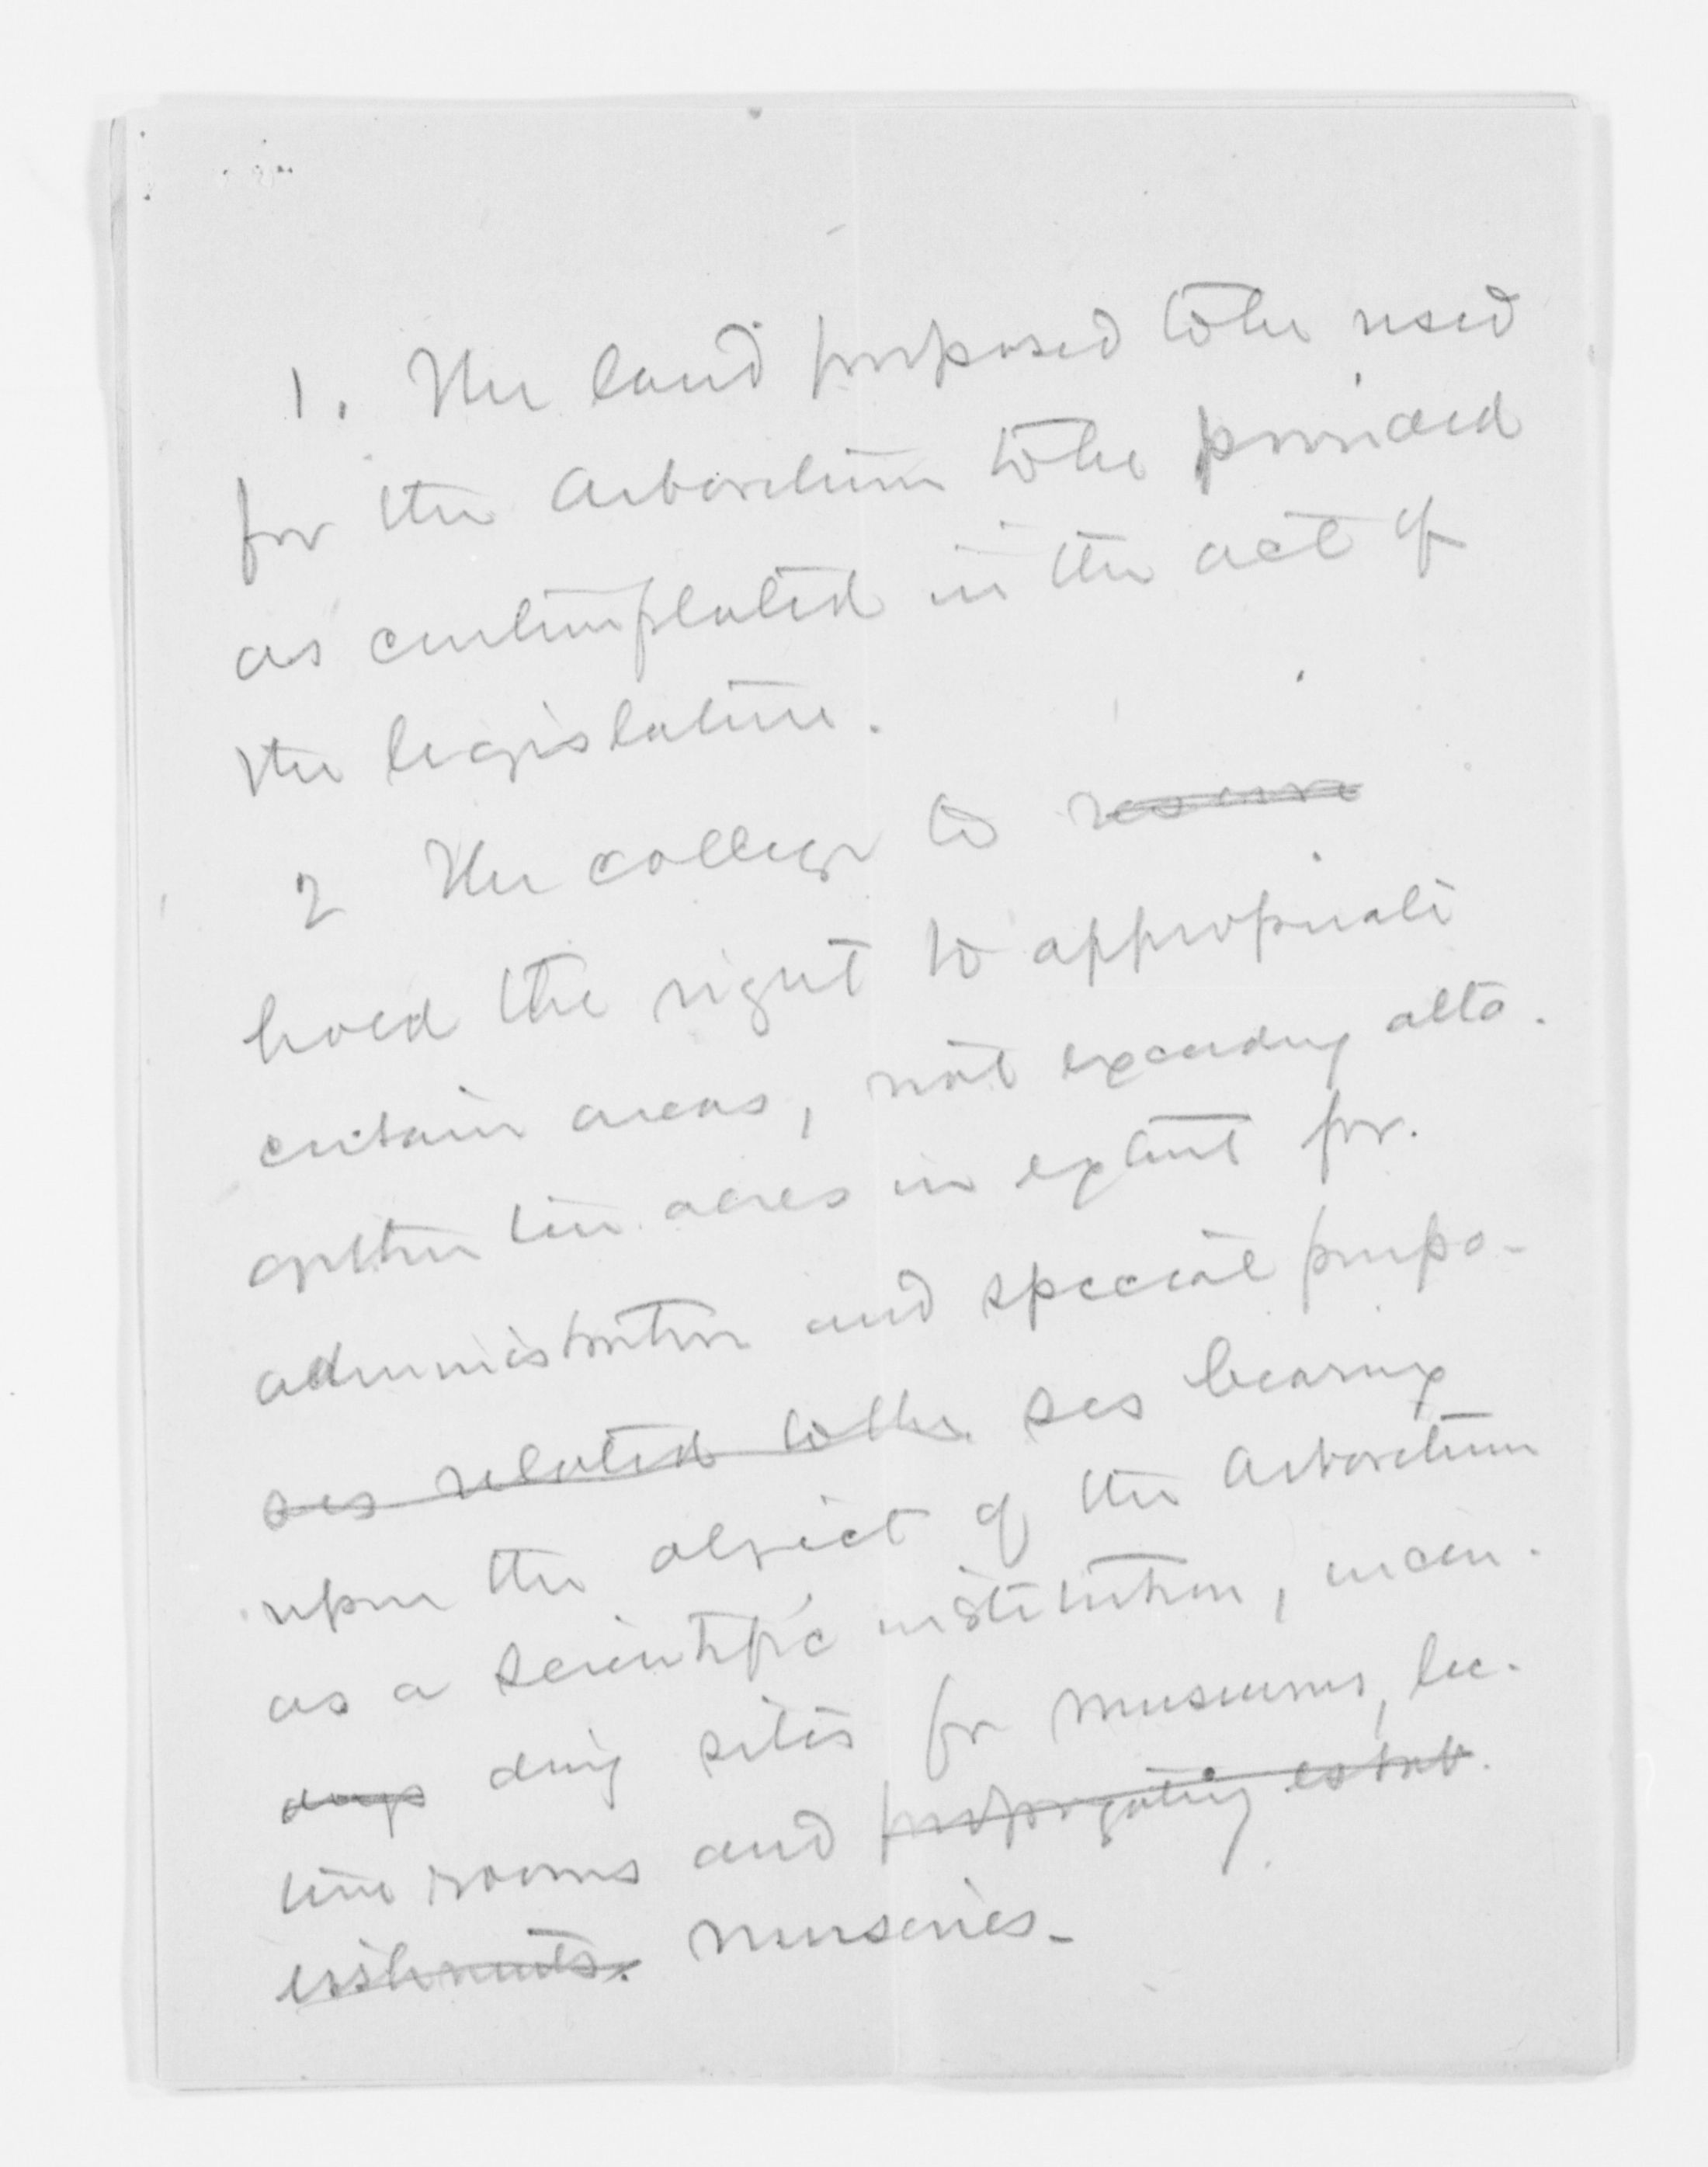 1. The land proposed to be used
for the arboretum to be provided
as contemplated in the act of
the legislature.
2 The college to reserve
hold the right to appropriate
certain areas, not exceeding alto-
gether ten acres in extent for
administration and special purpo-
ses related to the ses bearing
upon the object of the arboretum
as a scientific institution, inclu-
dings ding sites for museums, lec-
ture rooms and propagating estab-
lishments. nurseries-